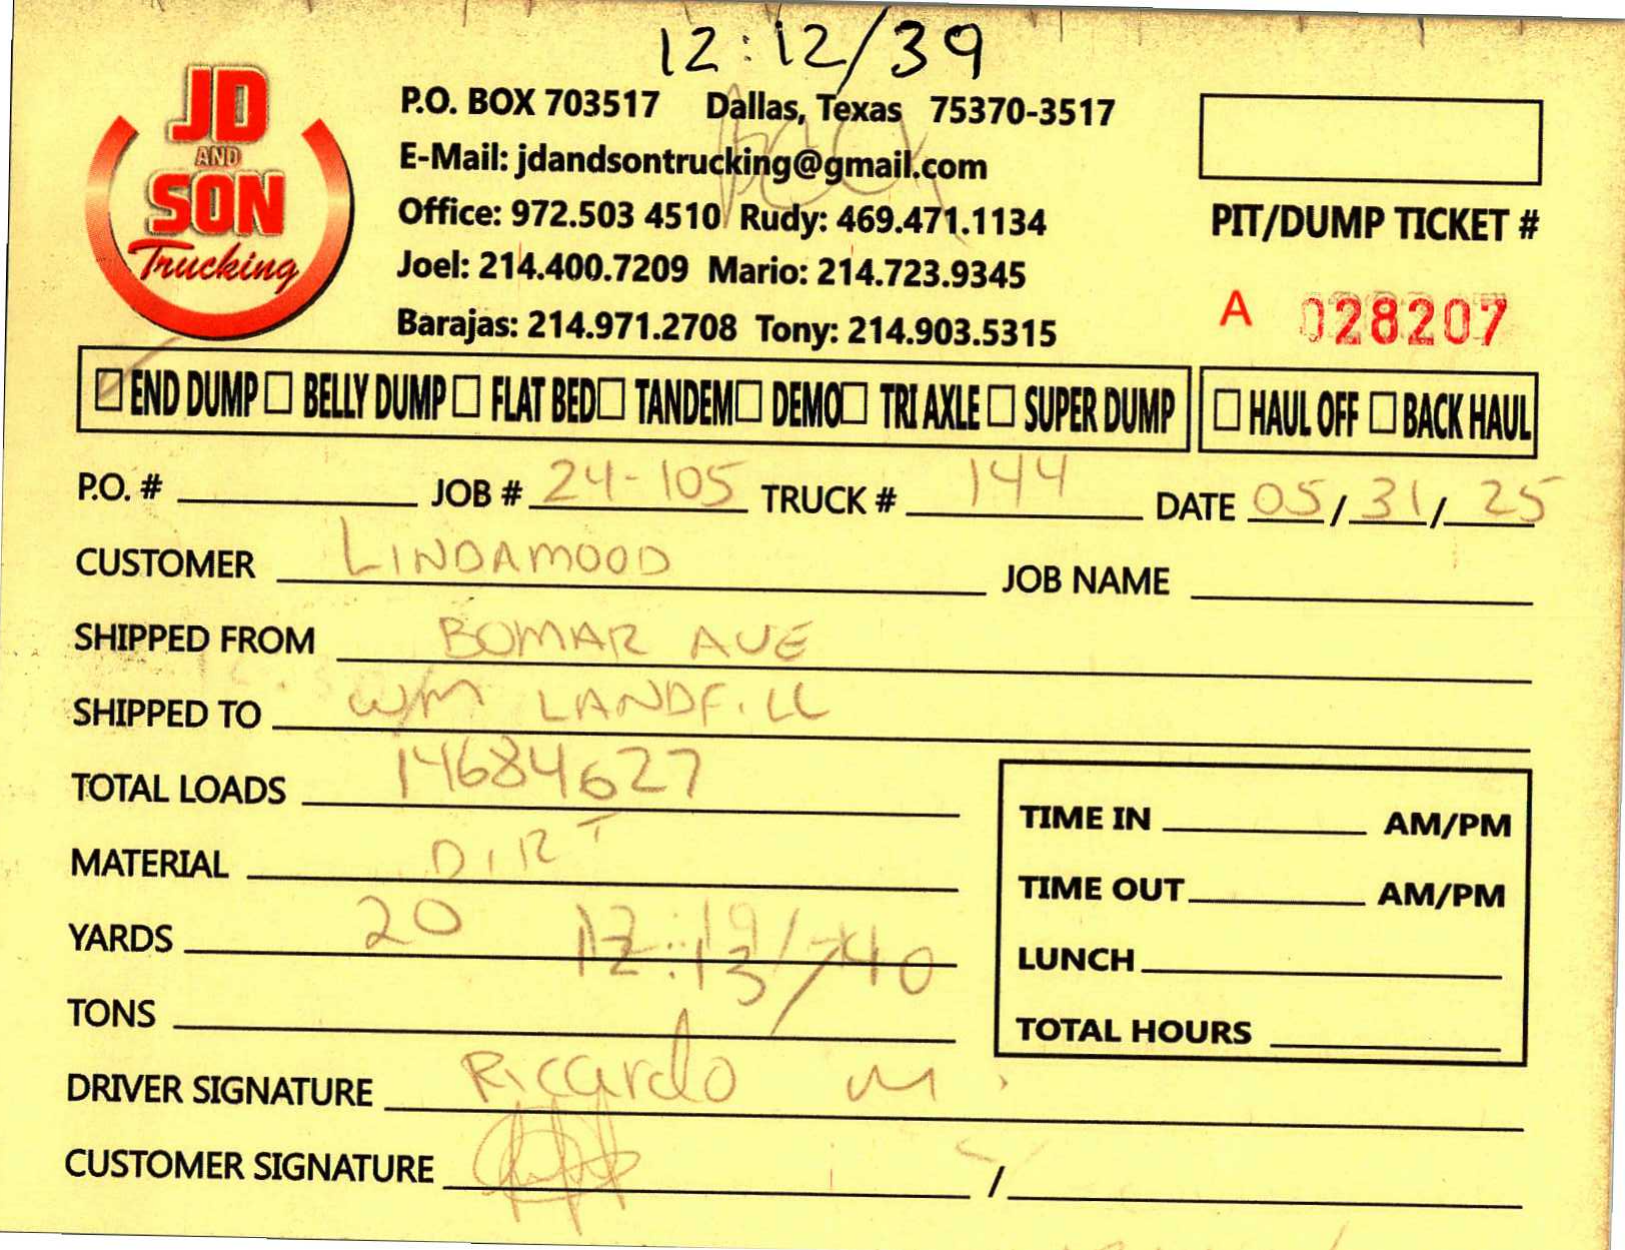 12:12/39
JD
AND
SON
Trucking
P.O. BOX 703517 Dallas, Texas 75370-3517
E-Mail: jdandsontrucking@gmail.com
Office: 972.503 4510 Rudy: 469.471.1134
Joel: 214.400.7209 Mario: 214.723.9345
Barajas: 214.971.2708 Tony: 214.903.5315
PIT/DUMP TICKET #
A 028207
END DUMP BELLY DUMP FLAT BED TANDEM DEMO TRI AXLE SUPER DUMP HAUL OFF BACK HAUL
P.O. # JOB # 24-105 TRUCK # 144 DATE 05/31/25
CUSTOMER LINDAMOOD JOB NAME
SHIPPED FROM BOMAR AVE
SHIPPED TO WM LANDFILL
TOTAL LOADS 14684627
MATERIAL DIRT
YARDS 20 12:13/40
TONS
TIME IN AM/PM
TIME OUT AM/PM
LUNCH
TOTAL HOURS
DRIVER SIGNATURE Riccardo M.
CUSTOMER SIGNATURE /